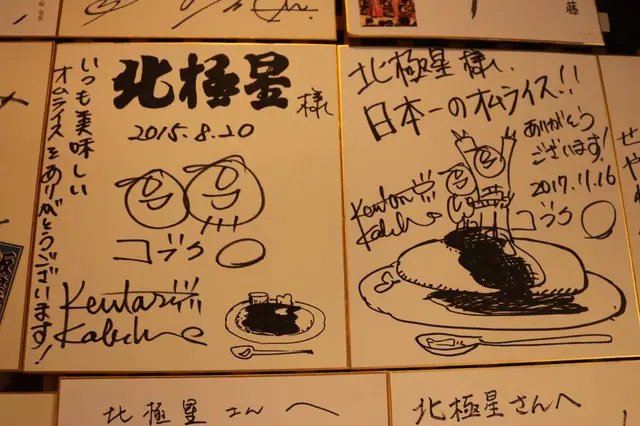 藤
北極星様
2015.8.20
いつも美味しい
オムライスをありがとうございます!
コブク○
北極星様、
日本一のオムライス!!
ありがとう
ございます!
2017.11.16
コブク○
せ
や
北極星さんへ
北極星さんへ